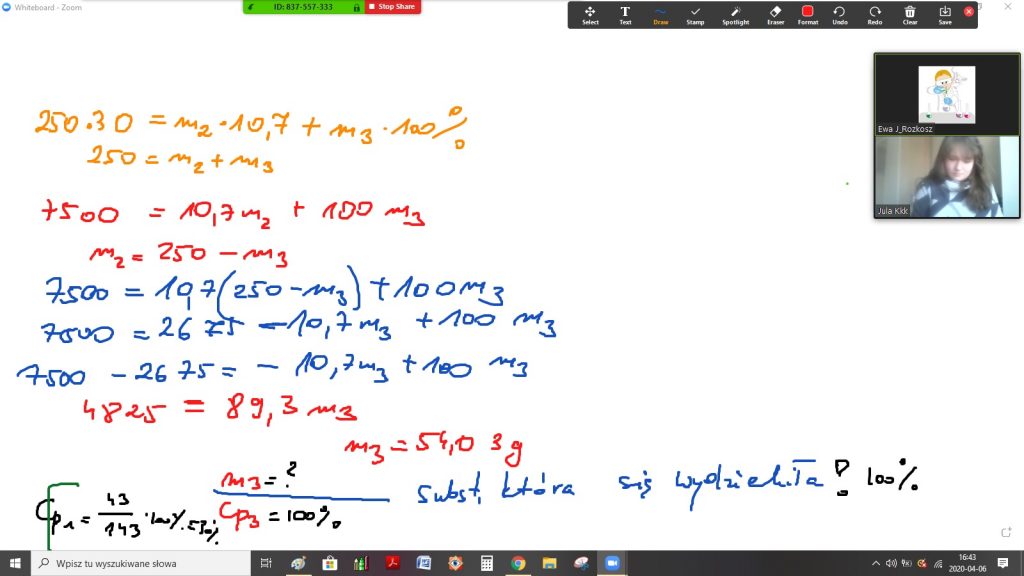 Whiteboard - Zoom
ID: 837-557-333
Stop Share
Select Text Draw Stamp Spotlight Eraser Format Undo Redo Clear Save
Ewa J_Rozkosz
Jula Kkk
250·30 = m₂·10,7 + m₃·100%
250 = m₂ + m₃
7500 = 10,7m₂ + 100 m₃
m₂ = 250 - m₃
7500 = 10,7(250 - m₃) + 100m₃
7500 = 2675 - 10,7m₃ + 100 m₃
7500 - 2675 = - 10,7m₃ + 100 m₃
4825 = 89,3 m₃
m₃ = 54,03g
m₃ = ?
subst, która się wydzieliła ! 100%
Cp₁ = 43/143 · 100% = 30%
Cp₃ = 100%
Wpisz tu wyszukiwane słowa
16:43
2020-04-06